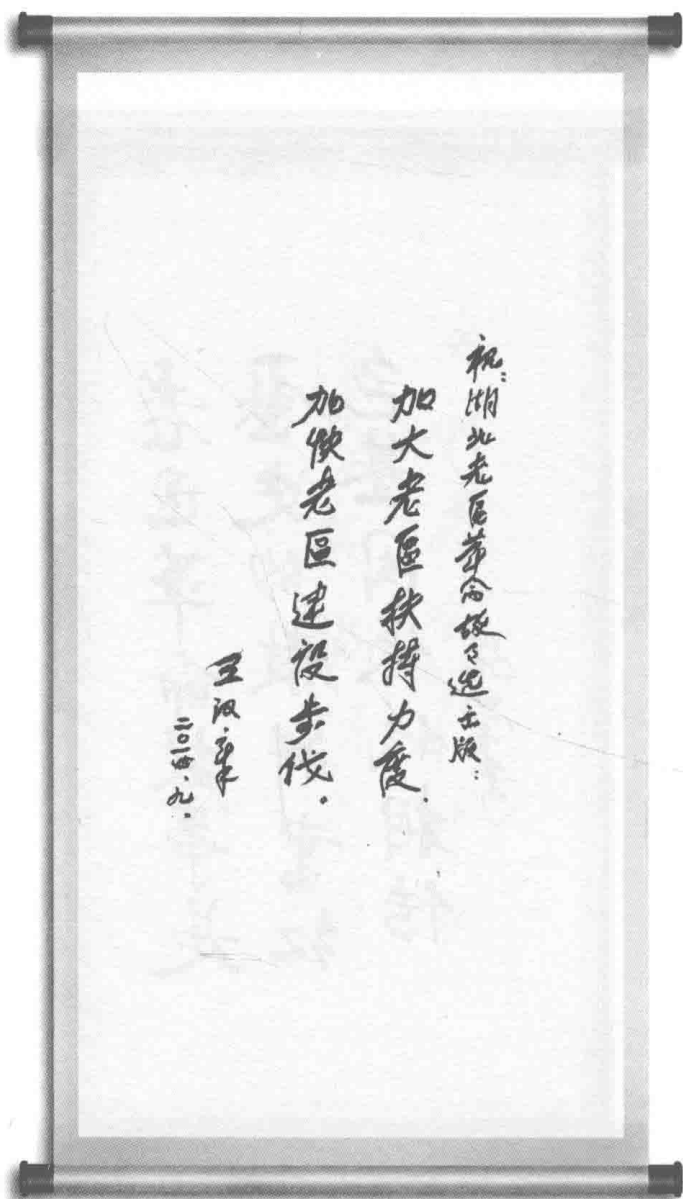 祝:湖北老区革命故事选出版:
加大老區扶持力度.
加快老區建设步伐。
王汉章
二〇一四、九.